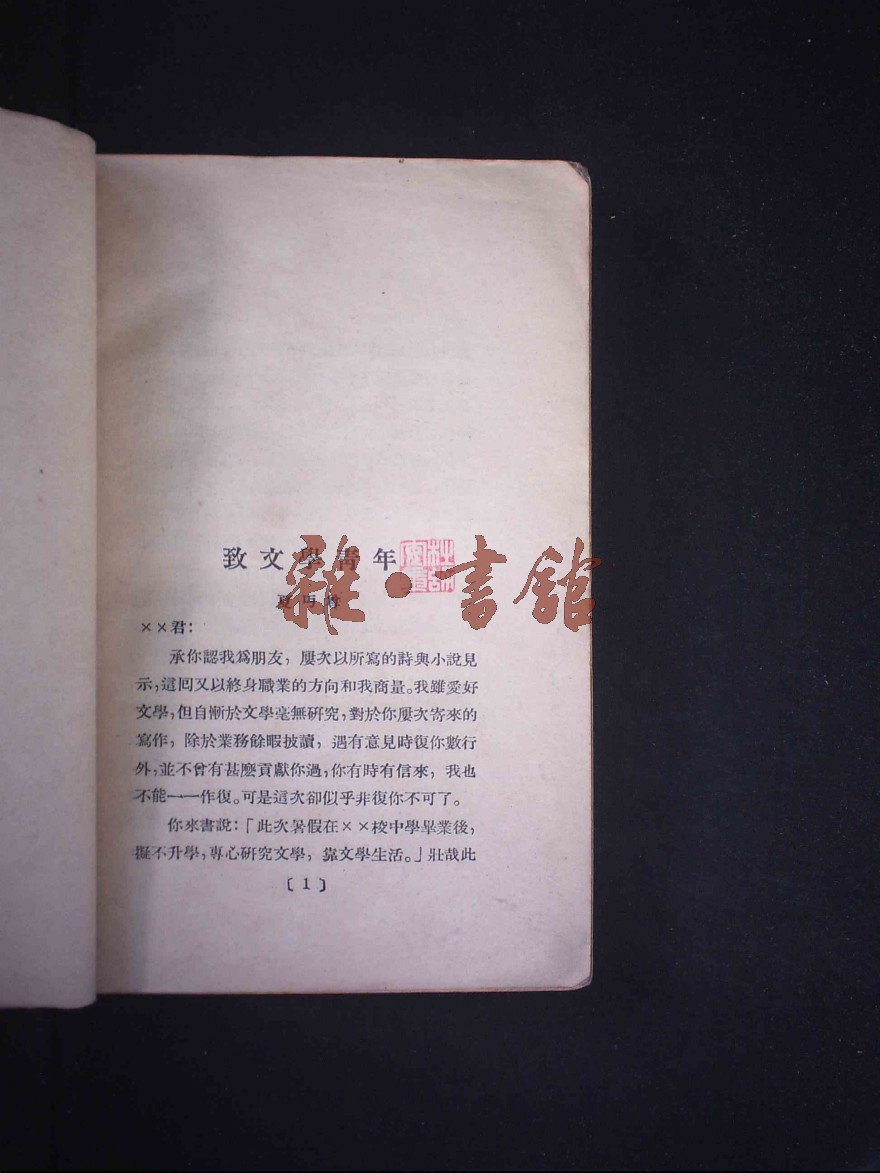 致文學靑年
夏丏尊
××君：
承你認我爲朋友，屢次以所寫的詩與小說見
示，這囘又以終身職業的方向和我商量。我雖愛好
文學，但自慚於文學毫無硏究，對於你屢次寄來的
寫作，除於業務餘暇披讀，遇有意見時復你數行
外，並不曾有甚麽貢獻你過，你有時有信來，我也
不能一一作復。可是這次卻似乎非復你不可了。
你來書說：「此次暑假在××校中學畢業後，
擬不升學，專心硏究文學，靠文學生活。」壯哉此
〔1〕
雜·書館